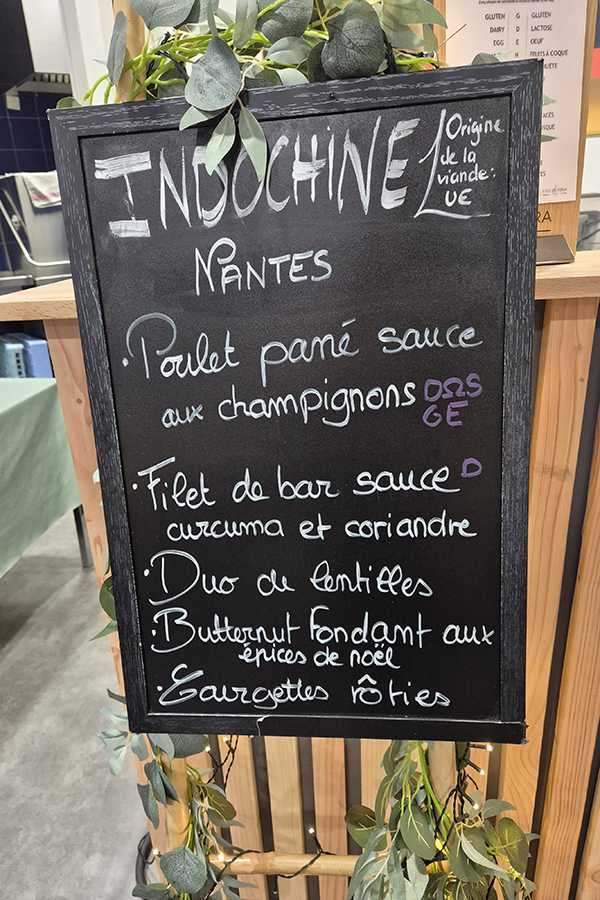 GLUTEN G GLUTEN
DAIRY D LACTOSE
EGG E OEUF
N FRUITS À COQUE
INDOCHINE
Origine
de la
viande:
UE
NANTES
· Poulet pané sauce
aux champignons DΩS
GE
· Filet de bar sauce D
curcuma et coriandre
· Duo de lentilles
· Butternut fondant aux
épices de noël
· Courgettes rôties